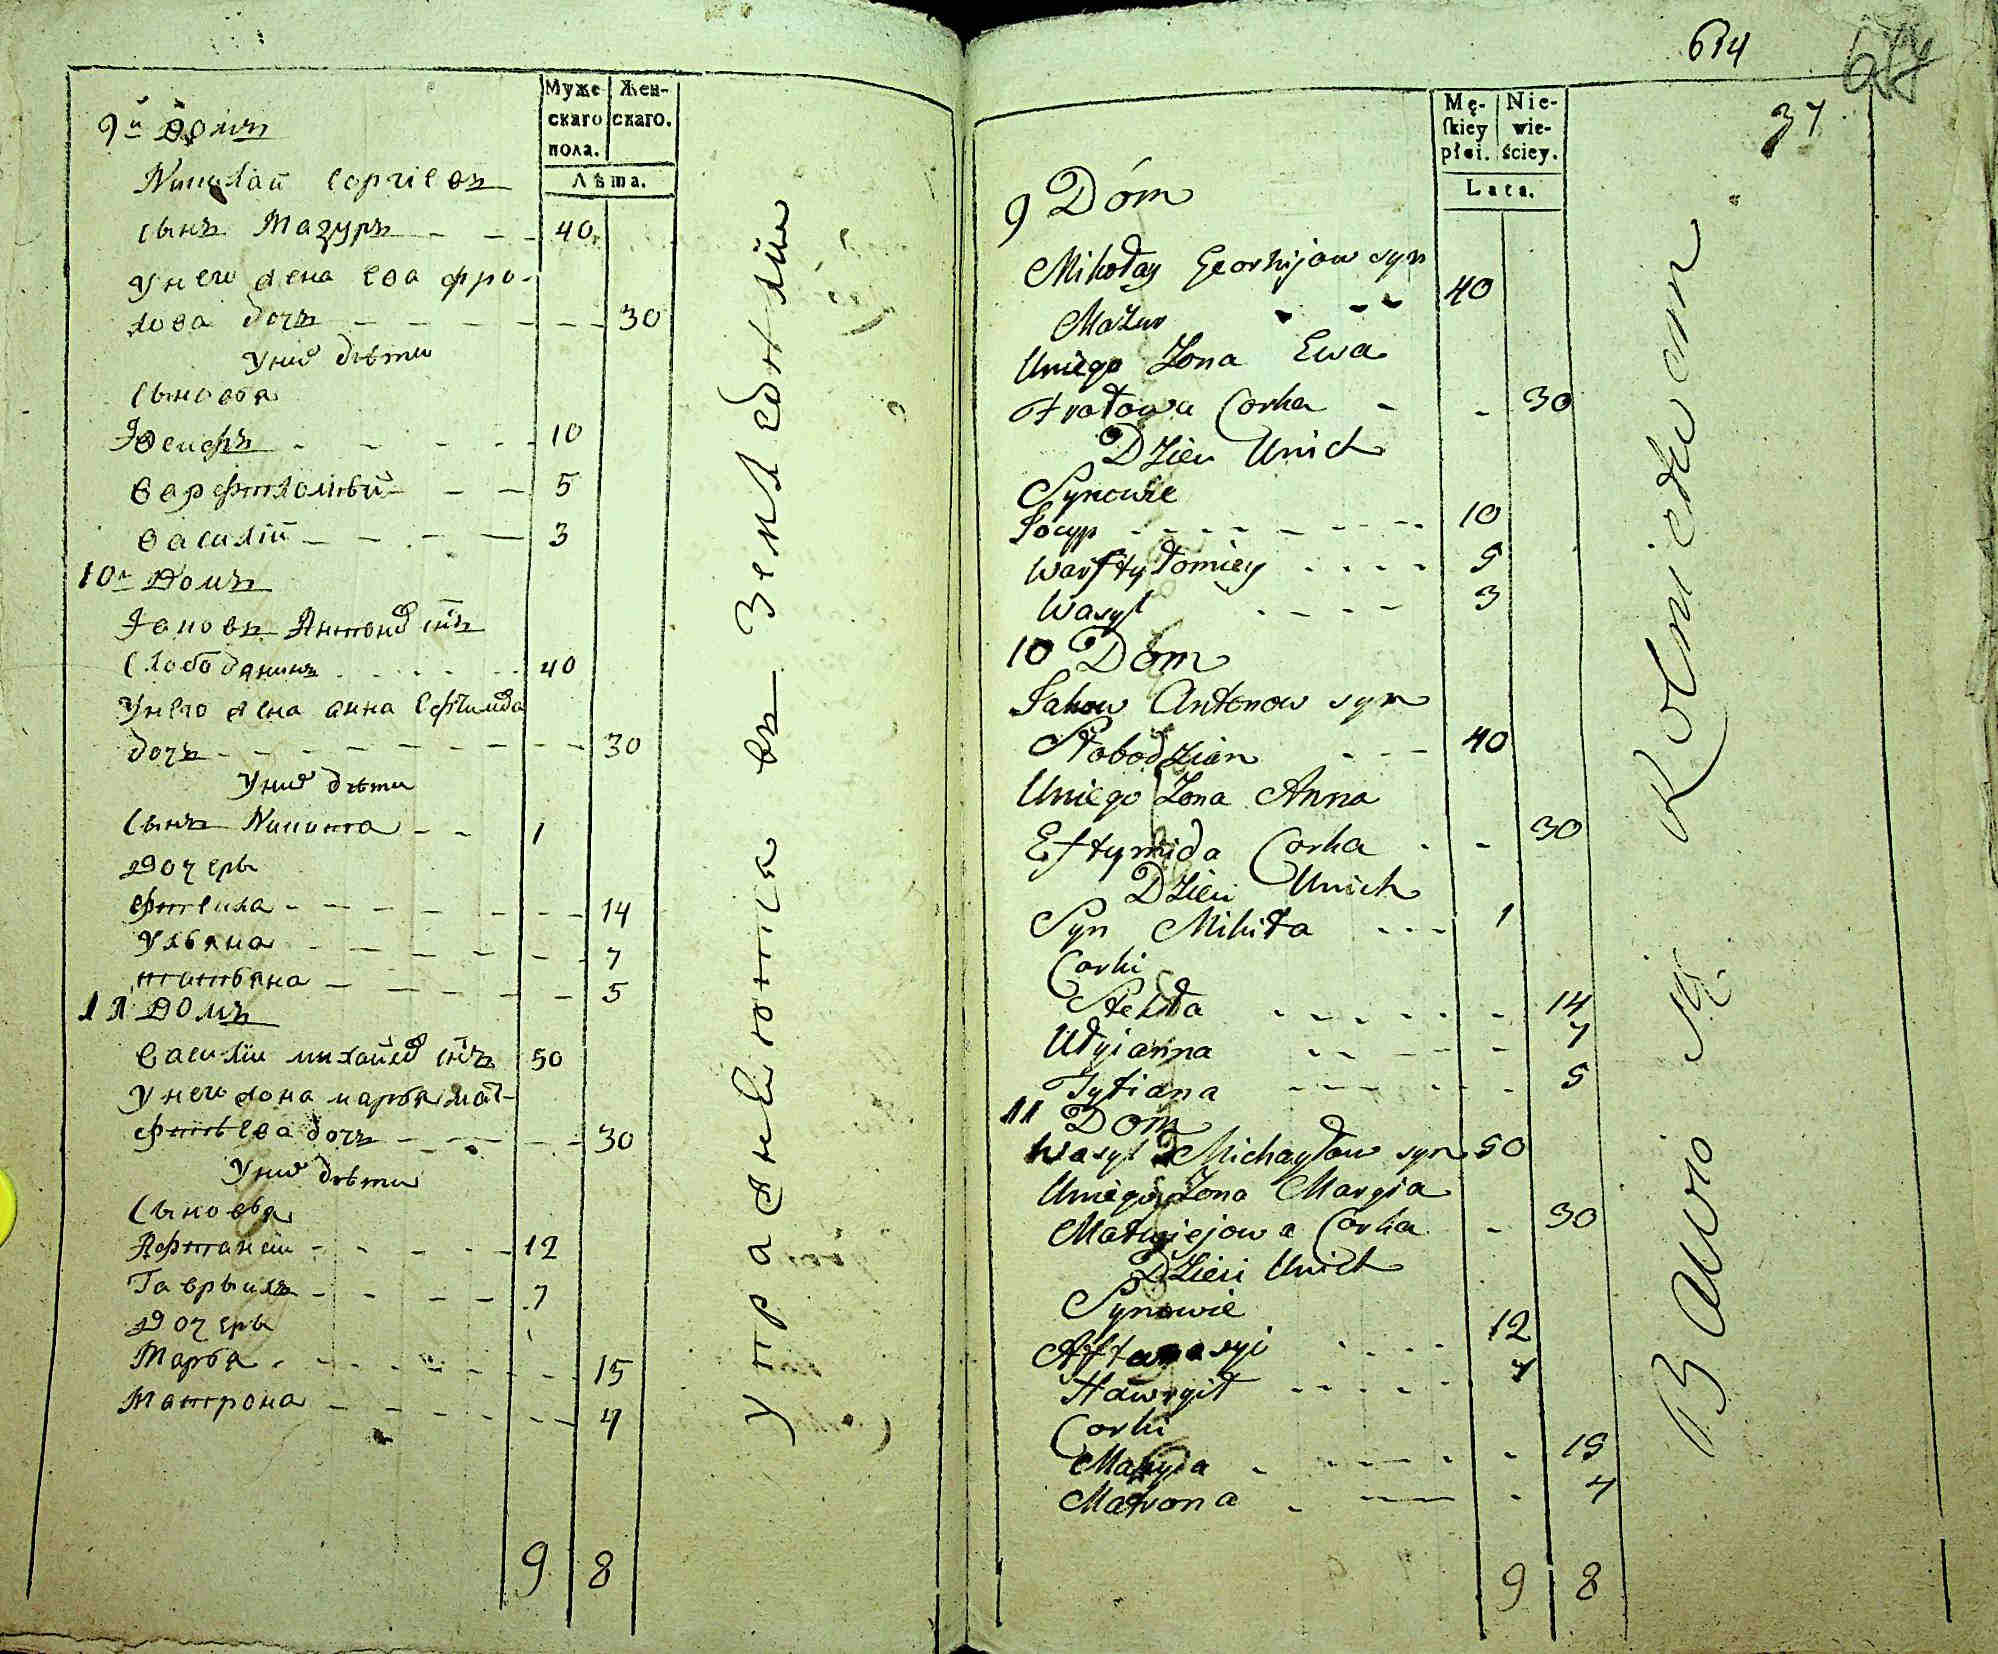 Муже скаго пола.
Жен- скаго.
Лѣта.
9й Домъ
Николай Еоргіевъ
сынъ Мазуръ - - - 40
У него жена Ева фро-
лова дочъ - - - 30
У нихъ дѣти
Сыновья
Іосифъ - - - 10
Варфтоломѣй - - - 5
Василій - - - 3
10й Домъ
Яковъ Антоновъ снъ
Слободянинъ - - - 40
У него жена Анна Ефтимова
дочъ - - - 30
У нихъ дѣти
Сынъ Никита - - 1
Дочеры
Фтекла - - - 14
Ульяна - - - 7
Татьяна - - - 5
11 Домъ
Василій Михайловъ снъ 50
У него жона Марья Мат-
фтѣева дочъ - - - 30
У нихъ дѣти
Сыновья
Афтанасій - - - 12
Гаврыила - - - 7
Дочеры
Марья - - - 15
Матрона - - - 4
9 8
упражнѣются въ Земледѣліи
614
37
Mę- skiey płci.
Nie- wie- ściey.
Lata.
9 Dóm
Mikołay Georhijow syn
Mazur - - - 40
Uniego Zona Ewa
Frołowa Corka - - 30
Dzieci Unich
Synowie
Josyp - - - 10
Warftyłomiey - - - 5
Wasyl - - - 3
10 Dóm
Jakow Antonow syn
Słobodzian - - - 40
Uniego Zona Anna
Eftymida Corka - - 30
Dzieci Unich
Syn Mikita - - - 1
Corki
Stekła - - - 14
Ulyianna - - - 7
Tytiana - - - 5
11 Dom
Wasyl Michayłow syn 50
Uniego Zona Maryia
Matwiejowa Corka - 30
Dzieci Unich
Synowie
Aftanasyi - - - 12
Hawryił - - - 7
Corki
Maryia - - - 15
Matrona - - - 4
9 8
Bawio się Rolnictwem